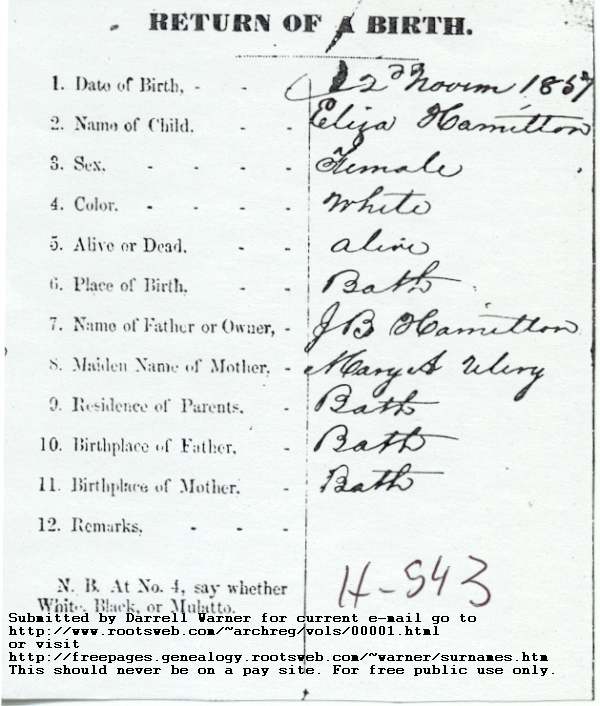 RETURN OF A BIRTH.
1. Date of Birth, - - - 2d Novem 1857
2. Name of Child. - - Eliza Hamilton
3. Sex. - - - - Female
4. Color. - - - - White
5. Alive or Dead, - - alive
6. Place of Birth, - - Bath
7. Name of Father or Owner, - J B Hamilton
8. Maiden Name of Mother, - Mary A
9. Residence of Parents. - Bath
10. Birthplace of Father, - Bath
11. Birthplace of Mother. - Bath
12. Remarks, - - -
N. B. At No. 4, say whether
White, Black, or Mulatto.
H-543
Submitted by Darrell Warner for current e-mail go to
http://www.rootsweb.com/~archreg/vols/00001.html
or visit
http://freepages.genealogy.rootsweb.com/~warner/surnames.htm
This should never be on a pay site. For free public use only.